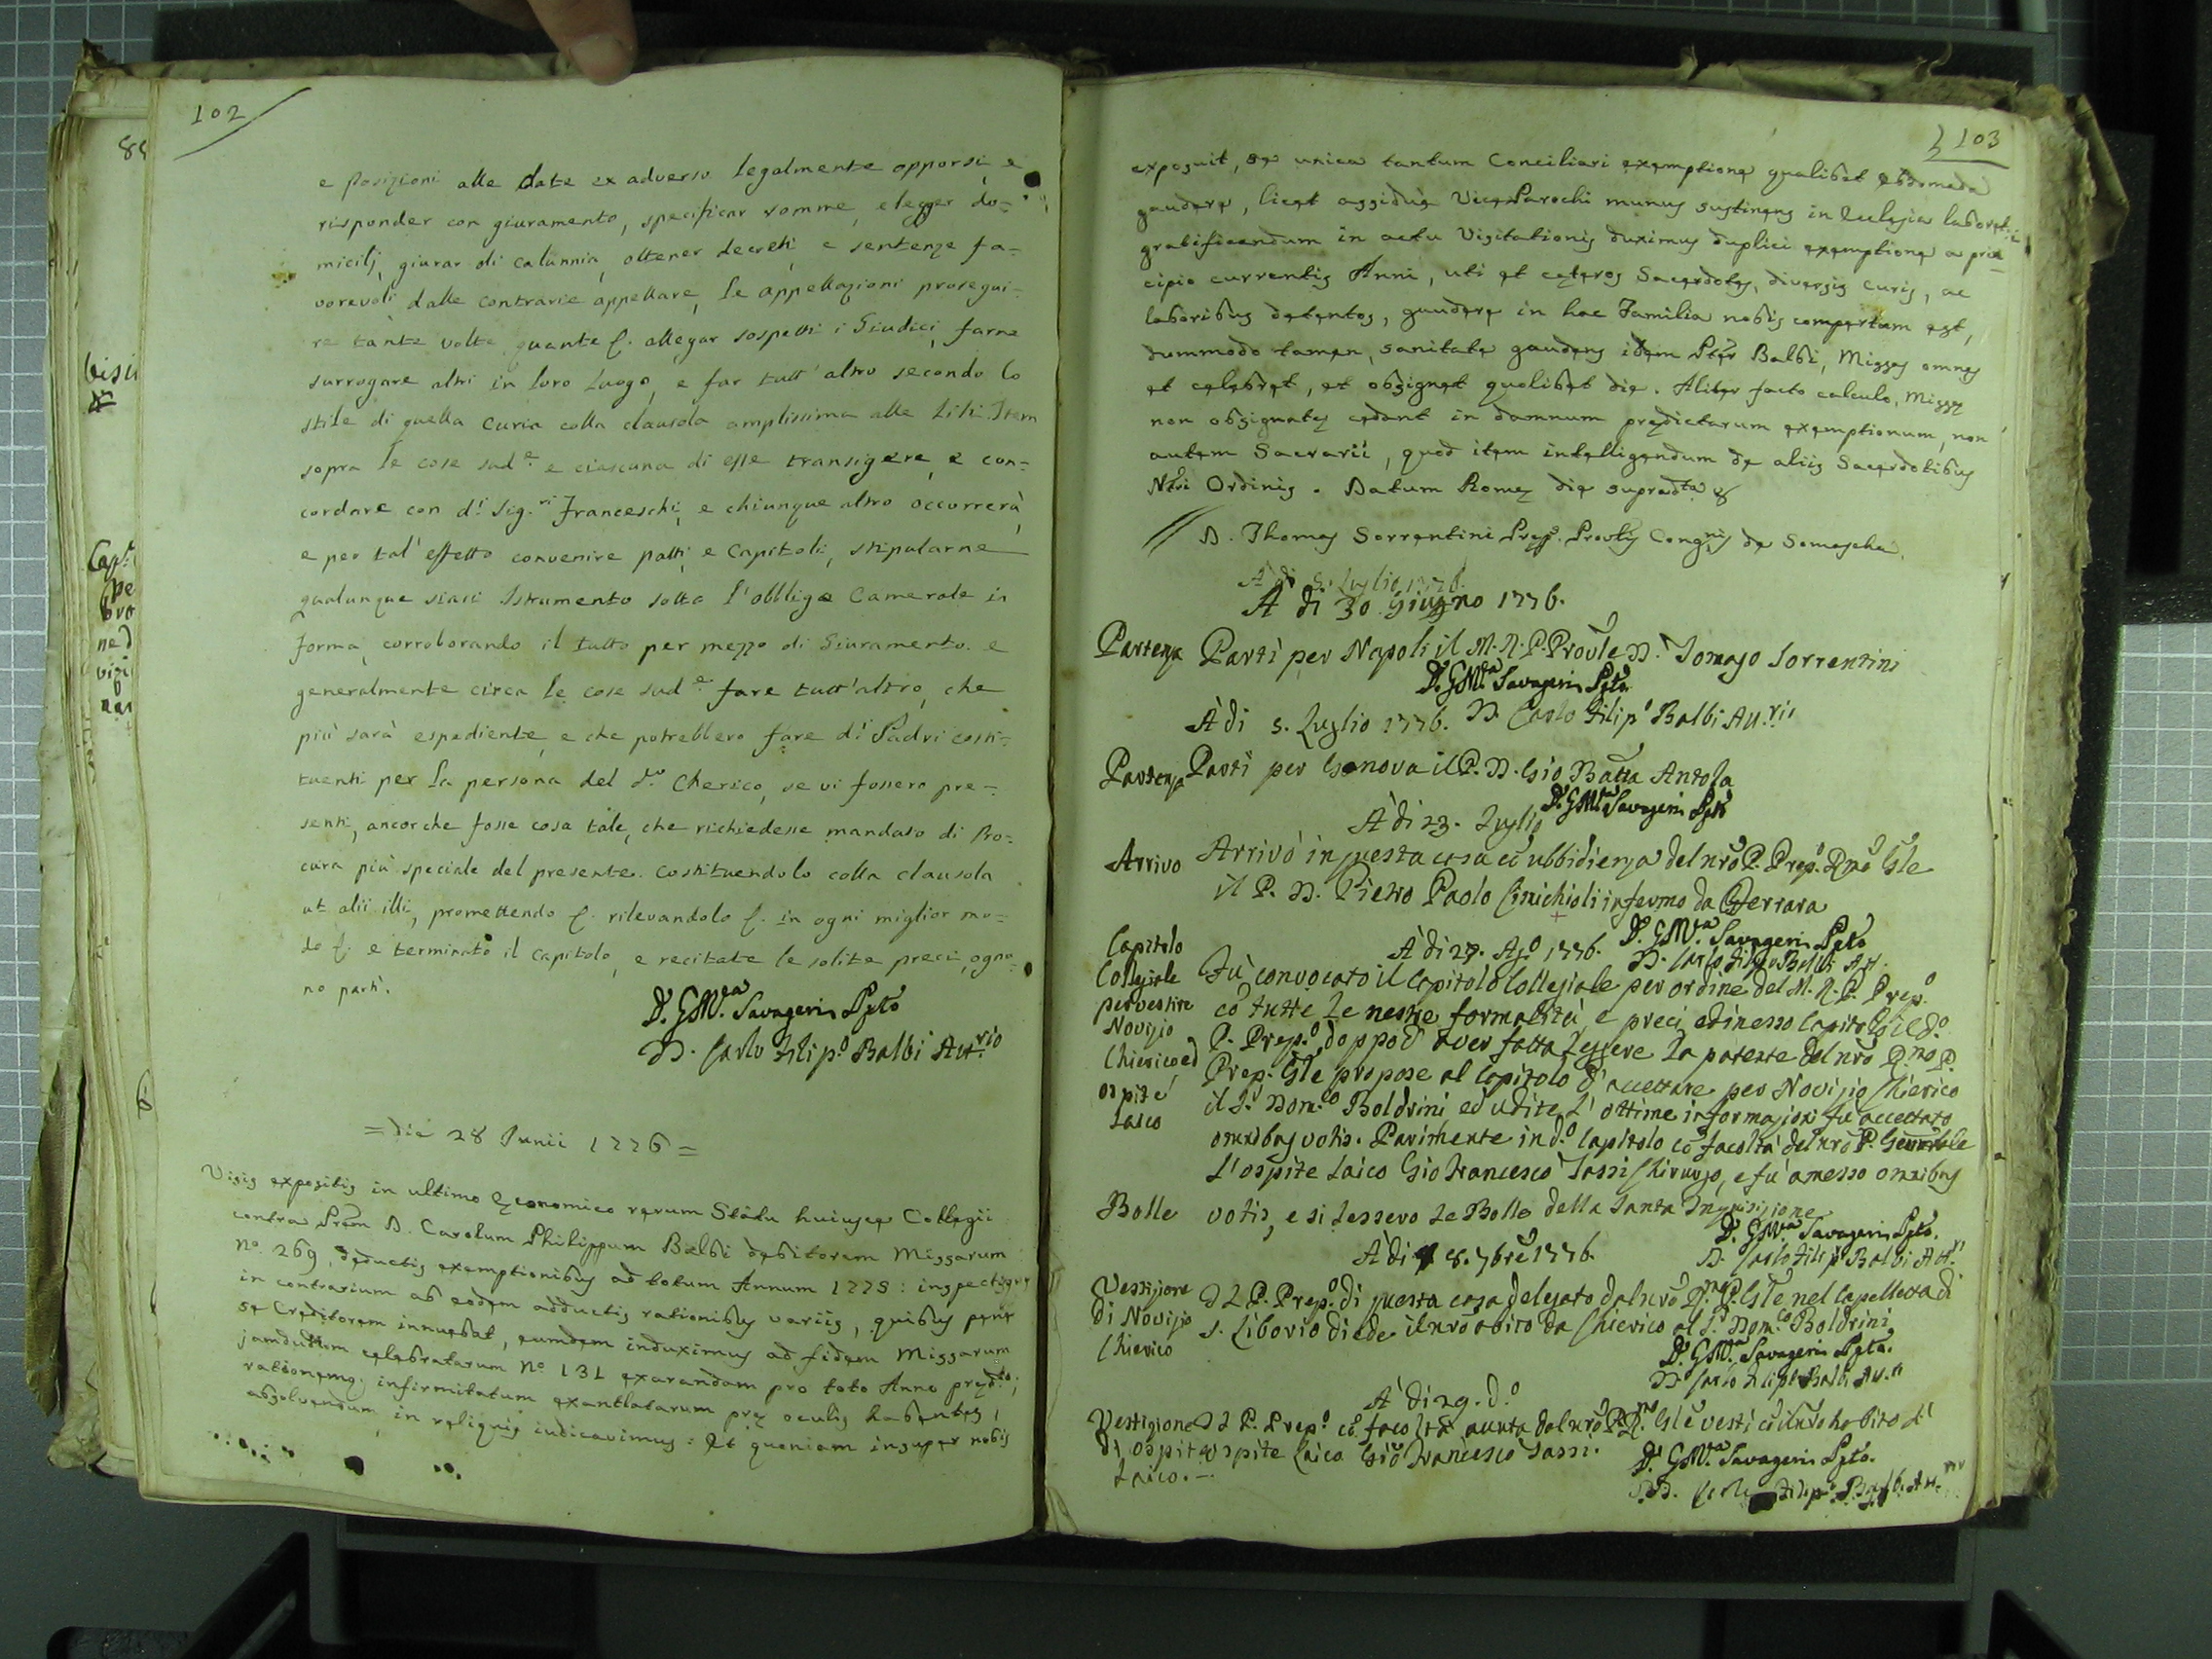 102
e posizioni alle date ex adverso legalmente opporsi, e
risponder con giuramento, specificar somme, elegger do=
micilj, giurar di calunnia, ottener decreti e sentenze fa=
vorevoli dalle contrarie appellare, le appellazioni prosegui=
re tante volte quante &. allegar sospetti i Giudici, farne
surrogare altri in loro luogo, e far tutt'altro secondo lo
stile di quella Curia colla clausola amplissima alle Liti. Item
sopra le cose sud.e e ciascuna di esse transigere, e con=
cordare con d.i Sig.ri Franceschi, e chiunque altro occorrerà,
e per tal'effetto convenire patti, e Capitoli, stipularne
qualunque siasi Istrumento sotto l'obbligo Camerale in
forma, corroborando il tutto per mezzo di Giuramento. e
generalmente circa le cose sud.e fare tutt'altro, che
più sarà espediente, e che potrebbero fare d.i Padri costi=
tuenti per la persona del d.o Cherico, se vi fossero pre=
senti, ancorche fosse cosa tale, che richiedesse mandato di Pro=
cura più speciale del presente. Costituendolo colla clausola
ut alii illi, promettendo &. rilevandolo &. in ogni miglior mo=
do &. e terminato il Capitolo, e recitate le solite preci, ognu=
no partì.
D. G.M.a Savageri Pṕto
D. Carlo Filip.o Balbi Att.rio
= die 28 Junii 1776 =
Visis expositis in ultimo Economico rerum Statu huiusce Collegii
contra Prem D. Carolum Philippum Balbi debitorem Missarum
No. 269, deductis exemptionibus ad totum Annum 1775: inspectisque
in contrarium ab eodem adductis rationibus variis, quibus pene
se Creditorem innuebat, eumdem induximus ad fidem Missarum
jamdudum celebratarum No 131 exarandam pro toto Anno predto;
rationemq. infirmitatum exantlatarum pre oculis habentes,
absolvendum in reliquis iudicavimus: Et quoniam insuper nobis
103
exposuit, se unica tantum Conciliari exemptione qualibet ebdomada
gaudere, licet assidue ViceParochi munus sustinens in Ecclesia
gratificandum in actu Visitationis duximus duplici exemptione a prin=
cipio currentis Anni, uti et ceteros Sacerdotes, diversis curis, ac
laboribus detentos, gaudere in hac Familia nobis compertum est,
dummodo tamen, sanitate gaudens idem Pter Balbi, Missas omnes
et celebret, et obsignet quolibet die. Aliter facto calculo, Misse
non obsignate cedant in damnum predictarum exemptionum, non
autem Sacrarii, quod item intelligendum de aliis Sacerdotibus
Nri Ordinis. Datum Rome die supradta &
D. Thomas Sorrentini Prep. Provlis Congnis de Somascha.
A di 5. Luglio 1776.
A di 30 Giugno 1776.
Partenza Partì per Napoli il M.R.P. Provle D. Tomaso Sorrentini
D. G.M.a Savageri Pṕto
A di 5. Luglio 1776. D. Carlo Filip.o Balbi Att.rio
Partenza Partì per Genova il P. D. Gio Batta Antola
D. G.M.a Savageri Pṕto
A di 23. Luglio
Arrivo Arrivò in questa casa cō ubbidienza del nrō P. Prep.o Rmō Gle
il P. D. Pietro Paolo infermo da Ferrara
D. G.M.a Savageri Pṕto
A di 27. Ag.o 1776. D. Carlo Filipo Balbi Att.
Capitolo
Collegiale
per vestire
Novizio
Chierico ed
ospite
Laico
Fù convocato il Capitolo Collegiale per ordine del M.R.P. Prep.o
cō tutte le nostre formalità, e preci, ed in esso Capitolo il d.o
P. Prep.o, doppo d'aver fatta leggere la patente del nrō R.mo P.
Prep. Gle propose al Capitolo d'accettare per Novizio Chierico
il S.r Dom.co Boldrini, ed udite l'ottime informazioni fu accettato
omnibus votis. Parimente in d.o Capitolo cō facoltà del nrō P. Generale
l'ospite Laico Gio Francesco Tassi Chirurgo, e fu amesso omnibus
Bolle votis, e si lessero le Bolle della Santa Inquisizione
D. G.M.a Savageri Pṕto.
A di 8. 7bre 1776. D. Carlo Filip Balbi Att.ri
Vestizione
di Novizio
Chierico
Il P. Prep.o di questa casa delegato dal nrō R.mo P. Gle nel Capelletta di
S. Liborio diede il nro abito da Chierico al S.r Dom.co Boldrini
D. G.M.a Savageri Pṕto.
D. Carlo Filip Balbi Att.ri
A di 29. d.o
Vestizione
di ospite
Laico. -
Il P. Prep.o cō facoltà avuta dal nrō P. R.mo Gle vestì cō il nrō habito l'
ospite Laico Gio Francesco Tassi.
D. G.M.a Savageri Pṕto.
D. Carlo Filip.o Balbi Att.rio